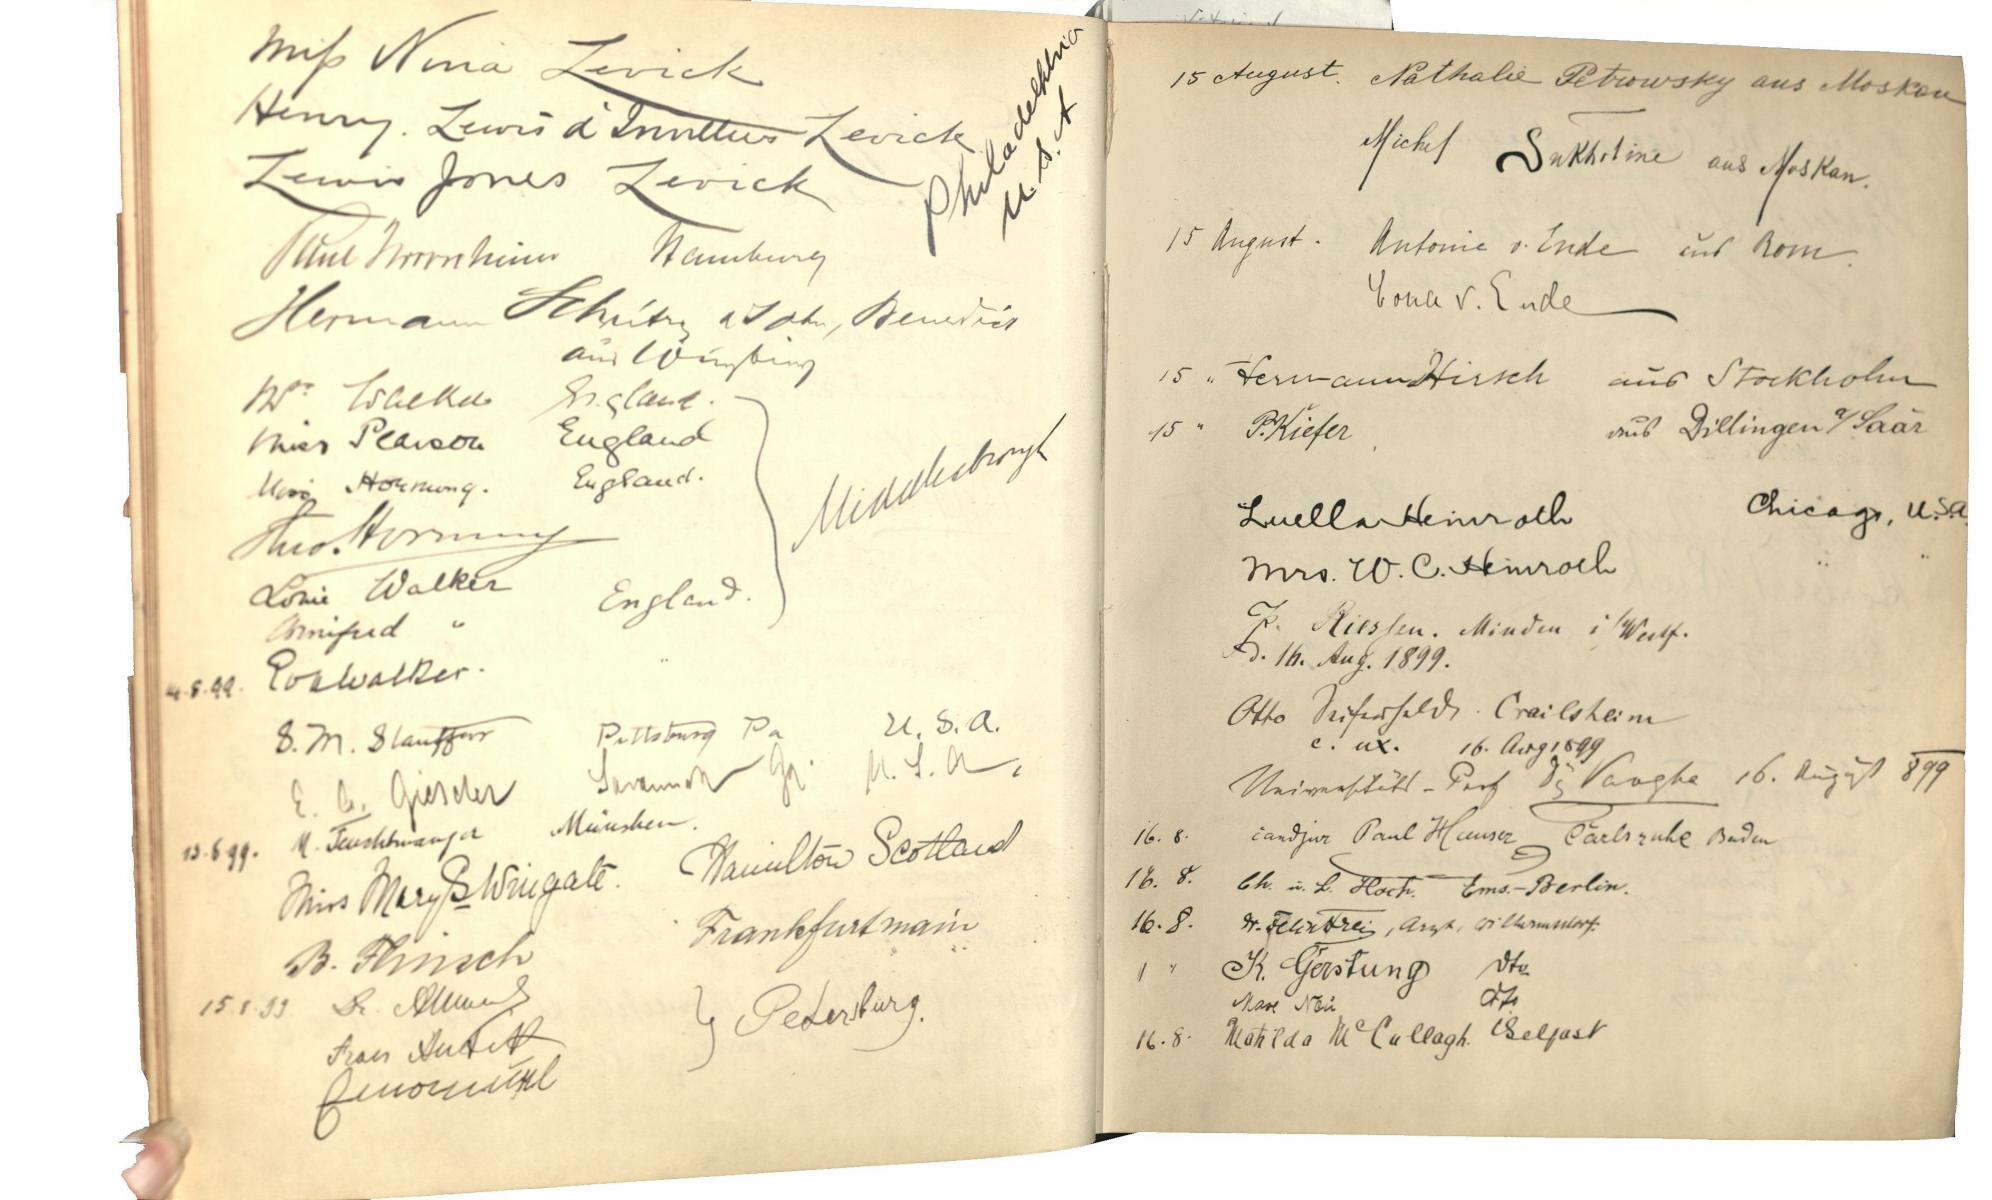 Miss Nina Levick
Henry. Lewis d'Invilliers Levick
Lewis Jones Levick
Philadelphia
U.S.A
Paul Hamburg
Hermann Schütz u Sohn, Benedict
aus Würzburg
Mr. Walker England.
Miss Pearson England
Miss Hornung. England.
Theo. Hornung
Middlesbrough
Louie Walker England.
Winifred "
4.8.99. Eva Walker. "
S. M. Stauffer Pittsburg Pa U.S.A.
E. Gieseler Savannah Ga. U.S.A.
M. Feuchtwanger München.
13.8.99.
Miss Mary S Wingate. Hamilton Scotland
B. Flinsch Frankfurt main
15.8.99 Dr.
Frau
Petersburg.
15 August. Nathalie Petrowsky aus Moskau
Michel Sukhotine aus Moskau.
15 August. Antonie v. Ende aus Rom.
v. Ende
15 " Hermann Hirsch aus Stockholm
15 " P. Kiefer aus Dillingen a/Saar
Luella Heinroth Chicago, U.S.A.
Mrs. W. C. Heinroth " "
Riessen. Minden i/Westf.
d. 16. Aug. 1899.
Otto Crailsheim
c. ux. 16. Aug 1899
Universitäts-Prof 16. August 899
16. 8. cand jur Paul Hauser Carlsruhe Baden
16. 8. Ch. u. L. Hoch. Ems.-Berlin.
16. 8. Dr. Felix Frei, Arzt, Wilhermsdorf.
" " K. Gerstung dto
Max Neu dto.
16. 8. Matilda McCullagh. Belfast